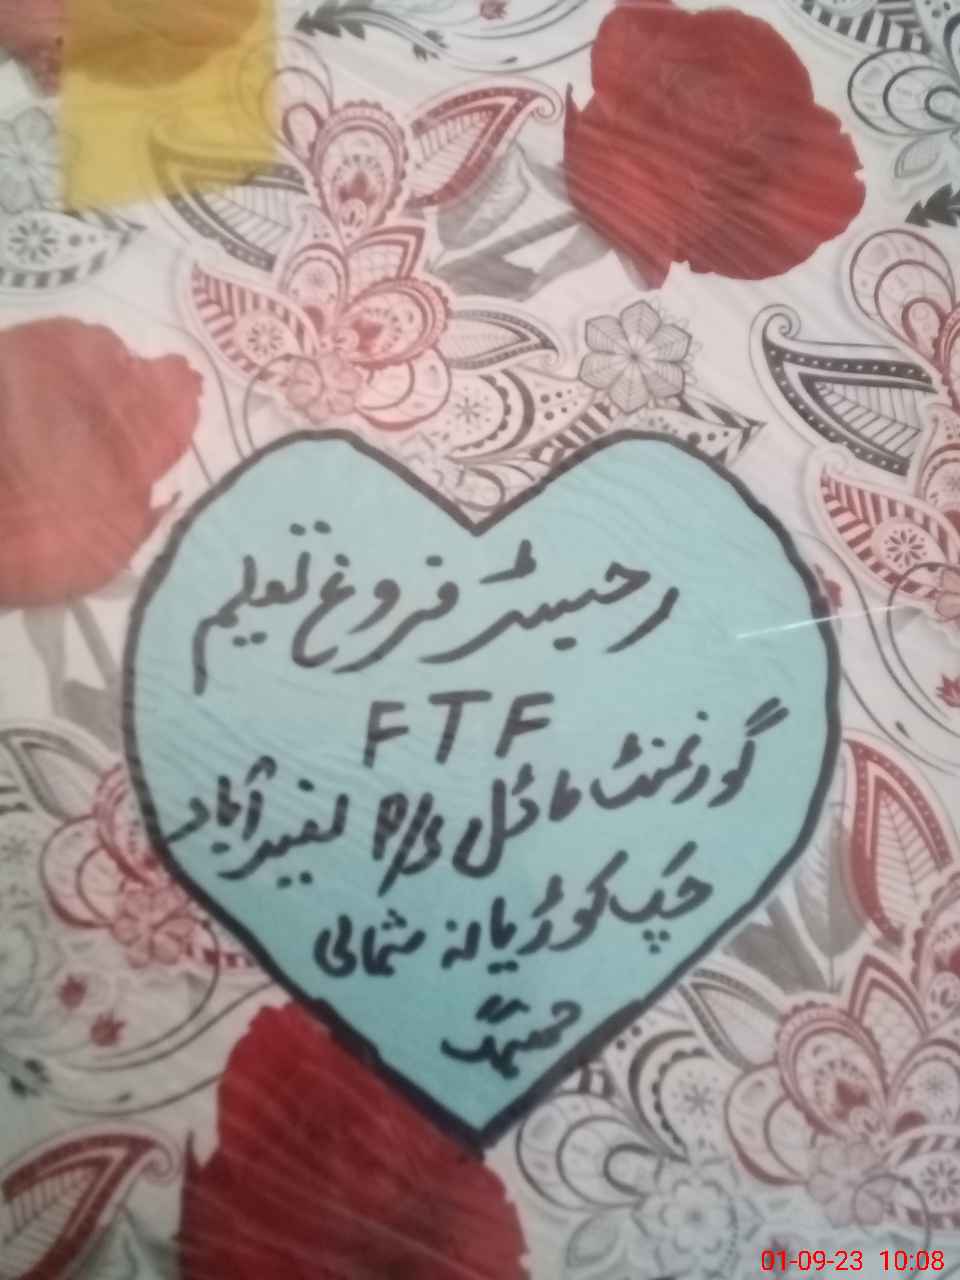 رجسٹر فروغ تعلیم
FTF
گورنمنٹ ماڈل P/S نصیر آباد
چک کوڑیانہ شمالی
01-09-23 10:08